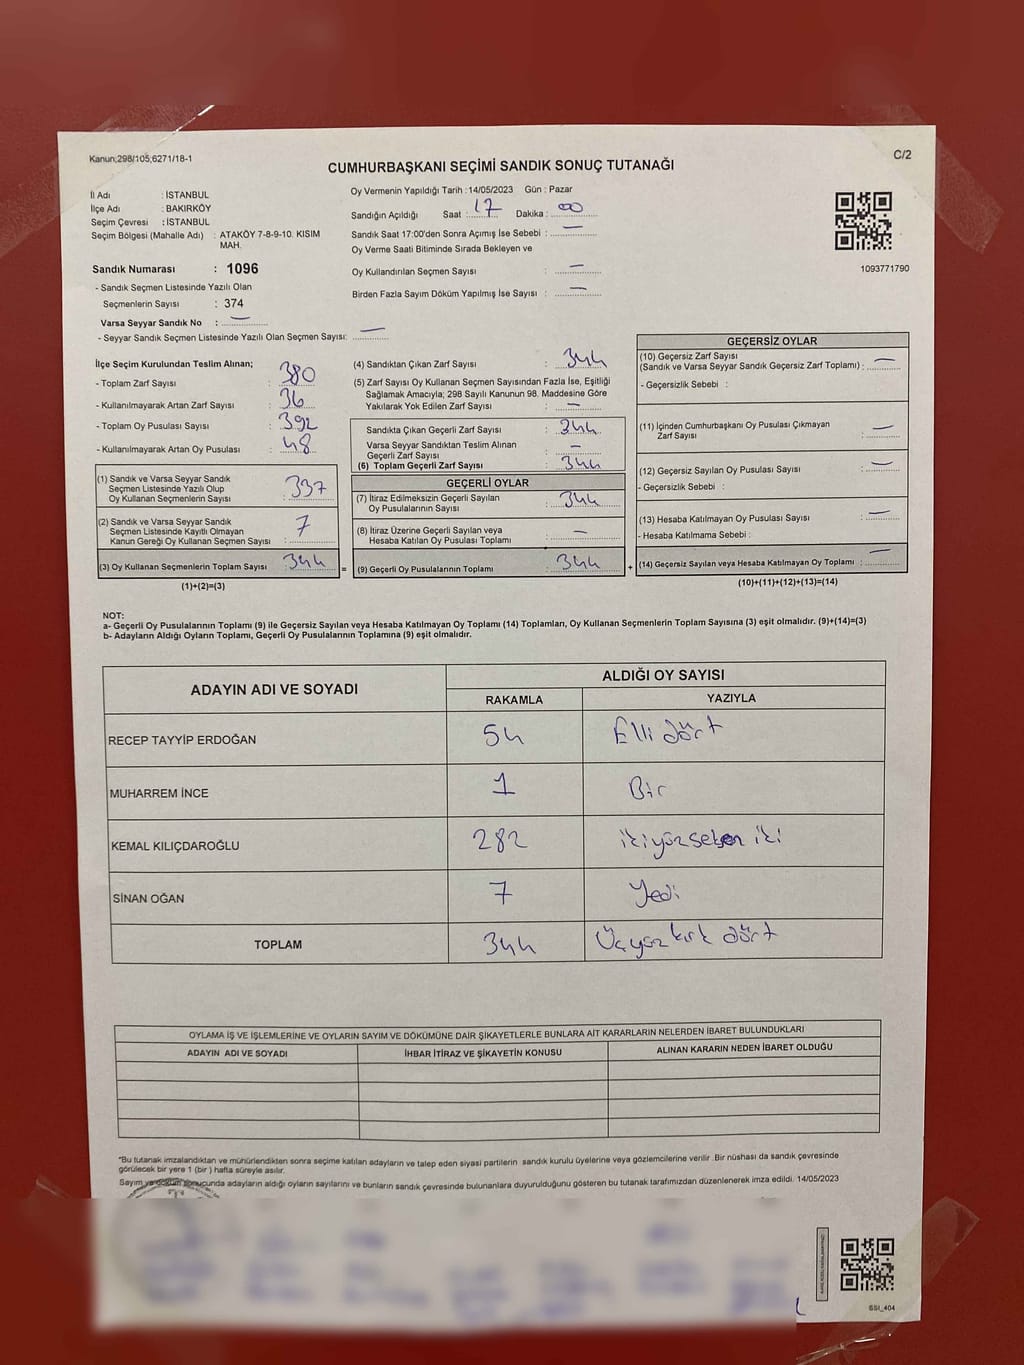 Kanun;298/105;6271/18-1
C/2
CUMHURBAŞKANI SEÇİMİ SANDIK SONUÇ TUTANAĞI
İl Adı : İSTANBUL
İlçe Adı : BAKIRKÖY
Seçim Çevresi : İSTANBUL
Seçim Bölgesi (Mahalle Adı) : ATAKÖY 7-8-9-10. KISIM MAH.
Sandık Numarası : 1096
- Sandık Seçmen Listesinde Yazılı Olan
Seçmenlerin Sayısı : 374
Varsa Seyyar Sandık No : —
- Seyyar Sandık Seçmen Listesinde Yazılı Olan Seçmen Sayısı: —
Oy Vermenin Yapıldığı Tarih : 14/05/2023 Gün : Pazar
Sandığın Açıldığı Saat : 17 Dakika : 00
Sandık Saat 17:00'den Sonra Açımış İse Sebebi : —
Oy Verme Saati Bitiminde Sırada Bekleyen ve
Oy Kullandırılan Seçmen Sayısı : —
Birden Fazla Sayım Döküm Yapılmış İse Sayısı : —
1093771790
İlçe Seçim Kurulundan Teslim Alınan;
- Toplam Zarf Sayısı : 380
- Kullanılmayarak Artan Zarf Sayısı : 36
- Toplam Oy Pusulası Sayısı : 392
- Kullanılmayarak Artan Oy Pusulası : 48
(1) Sandık ve Varsa Seyyar Sandık
Seçmen Listesinde Yazılı Olup
Oy Kullanan Seçmenlerin Sayısı : 337
(2) Sandık ve Varsa Seyyar Sandık
Seçmen Listesinde Kayıtlı Olmayan
Kanun Gereği Oy Kullanan Seçmen Sayısı : 7
(3) Oy Kullanan Seçmenlerin Toplam Sayısı : 344
(1)+(2)=(3)
(4) Sandıktan Çıkan Zarf Sayısı : 344
(5) Zarf Sayısı Oy Kullanan Seçmen Sayısından Fazla İse, Eşitliği
Sağlamak Amacıyla; 298 Sayılı Kanunun 98. Maddesine Göre
Yakılarak Yok Edilen Zarf Sayısı : —
Sandıkta Çıkan Geçerli Zarf Sayısı : 344
Varsa Seyyar Sandıktan Teslim Alınan
Geçerli Zarf Sayısı : —
(6) Toplam Geçerli Zarf Sayısı : 344
GEÇERLİ OYLAR
(7) İtiraz Edilmeksizin Geçerli Sayılan
Oy Pusulalarının Sayısı : 344
(8) İtiraz Üzerine Geçerli Sayılan veya
Hesaba Katılan Oy Pusulası Toplamı : —
= (9) Geçerli Oy Pusulalarının Toplamı : 344 +
GEÇERSİZ OYLAR
(10) Geçersiz Zarf Sayısı
(Sandık ve Varsa Seyyar Sandık Geçersiz Zarf Toplamı) : —
- Geçersizlik Sebebi :
(11) İçinden Cumhurbaşkanı Oy Pusulası Çıkmayan
Zarf Sayısı : —
(12) Geçersiz Sayılan Oy Pusulası Sayısı : —
- Geçersizlik Sebebi :
(13) Hesaba Katılmayan Oy Pusulası Sayısı : —
- Hesaba Katılmama Sebebi :
(14) Geçersiz Sayılan veya Hesaba Katılmayan Oy Toplamı : —
(10)+(11)+(12)+(13)=(14)
NOT:
a- Geçerli Oy Pusulalarının Toplamı (9) ile Geçersiz Sayılan veya Hesaba Katılmayan Oy Toplamı (14) Toplamları, Oy Kullanan Seçmenlerin Toplam Sayısına (3) eşit olmalıdır. (9)+(14)=(3)
b- Adayların Aldığı Oyların Toplamı, Geçerli Oy Pusulalarının Toplamına (9) eşit olmalıdır.
ADAYIN ADI VE SOYADI ALDIĞI OY SAYISI
RAKAMLA YAZIYLA
RECEP TAYYİP ERDOĞAN 54 Elli dört
MUHARREM İNCE 1 Bir
KEMAL KILIÇDAROĞLU 282 ikiyüzseksen iki
SİNAN OĞAN 7 Yedi
TOPLAM 344 Üçyüz kırk dört
OYLAMA İŞ VE İŞLEMLERİNE VE OYLARIN SAYIM VE DÖKÜMÜNE DAİR ŞİKAYETLERLE BUNLARA AİT KARARLARIN NELERDEN İBARET BULUNDUKLARI
ADAYIN ADI VE SOYADI İHBAR İTİRAZ VE ŞİKAYETİN KONUSU ALINAN KARARIN NEDEN İBARET OLDUĞU
"Bu tutanak imzalandıktan ve mühürlendikten sonra seçime katılan adayların ve talep eden siyasi partilerin sandık kurulu üyelerine veya gözlemcilerine verilir .Bir nüshası da sandık çevresinde
görülecek bir yere 1 (bir ) hafta süreyle asılır.
Sayım ve döküm sonucunda adayların aldığı oyların sayılarını ve bunların sandık çevresinde bulunanlara duyurulduğunu gösteren bu tutanak tarafımızdan düzenlenerek imza edildi. 14/05/2023
SSI_404